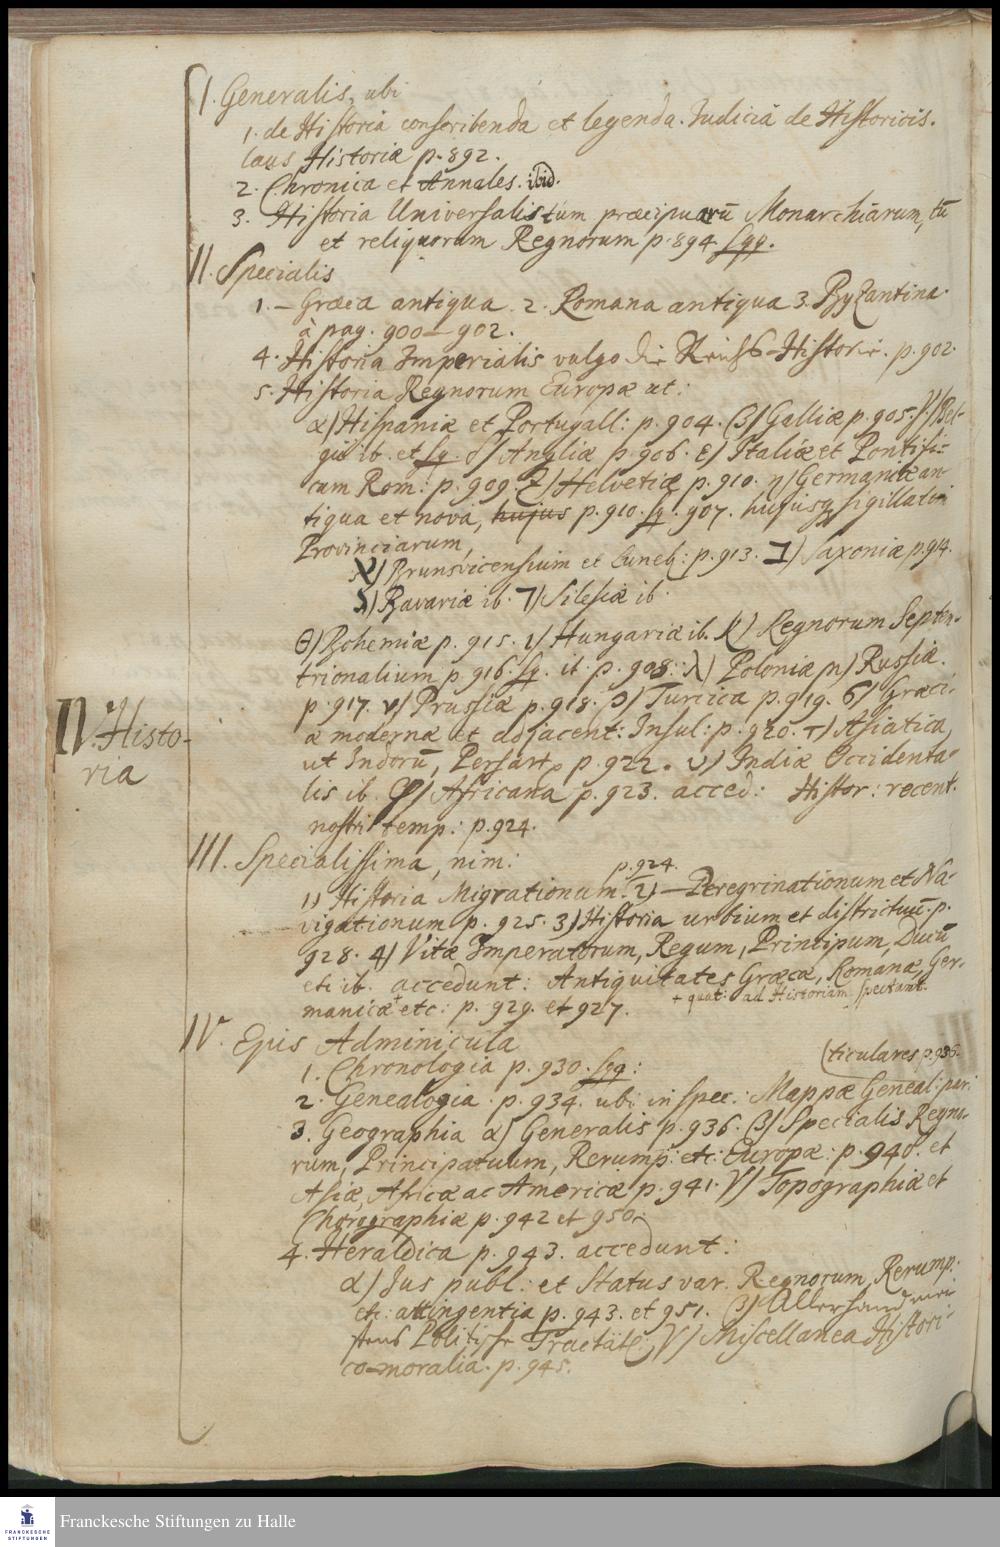 I. Generalis, ubi
1. de Historia conscribenda et legenda. Iudicia de Historicis.
laus Historiæ p. 892.
2. Chronica et Annales. ibid.
3. Historia Universalis tum præcipuarū Monarchiarum, tū
et reliquorum Regnorum p. 894 sqq.
II. Specialis
1. – Græca antiqua 2. Romana antiqua 3. Byzantina.
à pag. 900 – 902.
4. Historia Imperialis vulgo die Reichs-Historie. p. 902.
5. Historia Regnorum Europæ ut:
α) Hispaniæ et Portugall: p. 904. β) Galliæ p. 905. γ) Bel-
gii ib. et sq. δ) Angliæ p. 906. ε) Italiæ et Pontifi-
cum Rom: p. 909. ζ) Helvetiæ p. 910. η) Germaniæ an-
tiqua et nova, hujus p. 910. sq. 907. hujusq sigillatim
Provinciarum,
א) Brunsvicensium et Luneb: p. 913. ב) Saxoniæ p. 914.
ג) Bavariæ ib. ד) Silesiæ ib.
θ) Bohemiæ p. 915. ι) Hungariæ ib. κ) Regnorum Septen-
trionalium p. 916. sq. it. p. 908. λ) Poloniæ μ) Russiæ.
p. 917. ν) Prussiæ p. 918. ο) Turcica p. 919. σ) Græci-
æ modernæ et adjacent: Insul: p. 920. τ) Asiatica,
ut Indorū, Persarū p. 922. υ) Indiæ Occidenta-
lis ib. φ) Africana p. 923. acced: Histor: recent.
nostri temp: p. 924.
IV. Histo-
ria
III. Specialissima, nim:
p. 924.
1) Historia Migrationum 2) – Peregrinationum et Na-
vigationum p. 925. 3) Historia urbium et districtuū. p.
928. 4) Vitæ Imperatorum, Regum, Principum, Ducū
etc ib. accedunt: Antiquitates Græcæ, Romanæ, Ger-
manicæ + etc: p. 929. et 927.
+ quat: ad Historiam spectant.
IV. Ejus Adminicula
1. Chronologia p. 930. sqq:
(ticulares p. 936.
2. Genealogia. p. 934. ubi in spec: Mappæ Geneal: par:
3. Geographia α) Generalis p. 936. β) Specialis Regno-
rum, Principatuum, Rerump: etc: Europæ: p. 940. et
Asiæ, Africæ ac Americæ p. 941. γ) Topographiæ et
Chorographiæ p. 942 et 950.
4. Heraldica p. 943. accedunt:
α) Jus publ: et Status var. Regnorum, Rerump:
etc: attingentia p. 943. et 951. β) Allerhand mei-
stens Politische Tractätl: γ) Miscellanea Histori-
co-moralia. p. 945.
FRANCKESCHE
STIFTUNGEN
Franckesche Stiftungen zu Halle